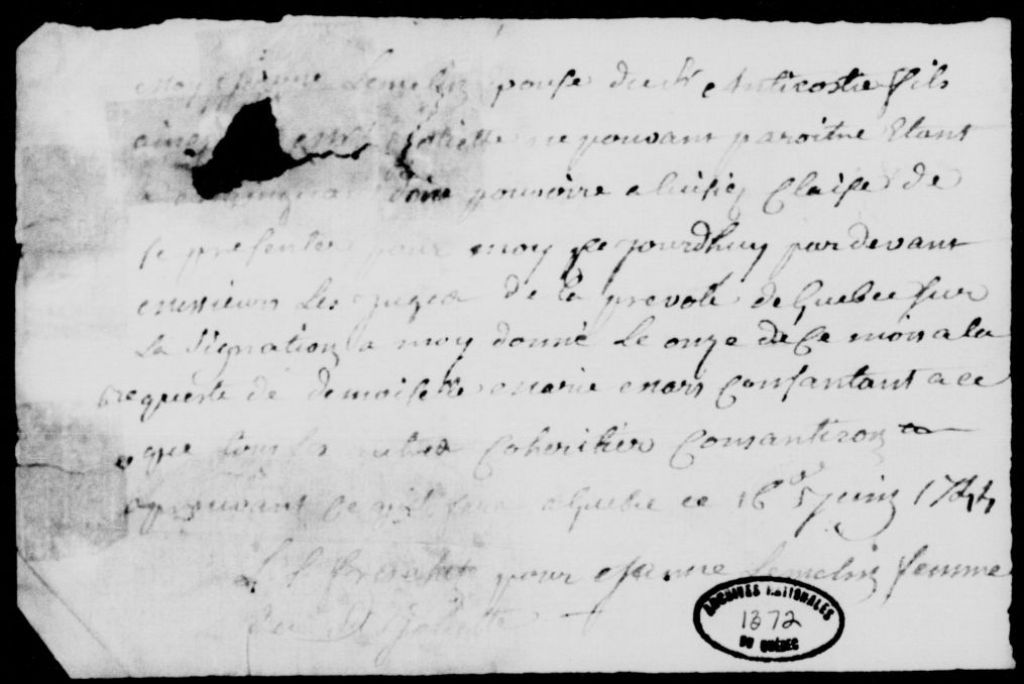 Moy Jeanne Lemelin épouse du Sr Anticostie fils
ainé Joliette ne pouvant paroitre Etant
donne pouvoire a Claise de
se presenter pour moy ce jourdhuy par devant
messieurs Les juges de la prevoté de Quebec sur
La signation a moy donné Le onze de Ce mois a la
requeste de demoiselle marie mars Consantant a ce
que tous les autres Coheritier Consantiron
aprouvant ce qu'il fera a Quebec ce 16e Juin 1744
pour Jeanne Lemelin femme
du Sr Joliette
ARCHIVES NATIONALES
1372
DU QUÉBEC